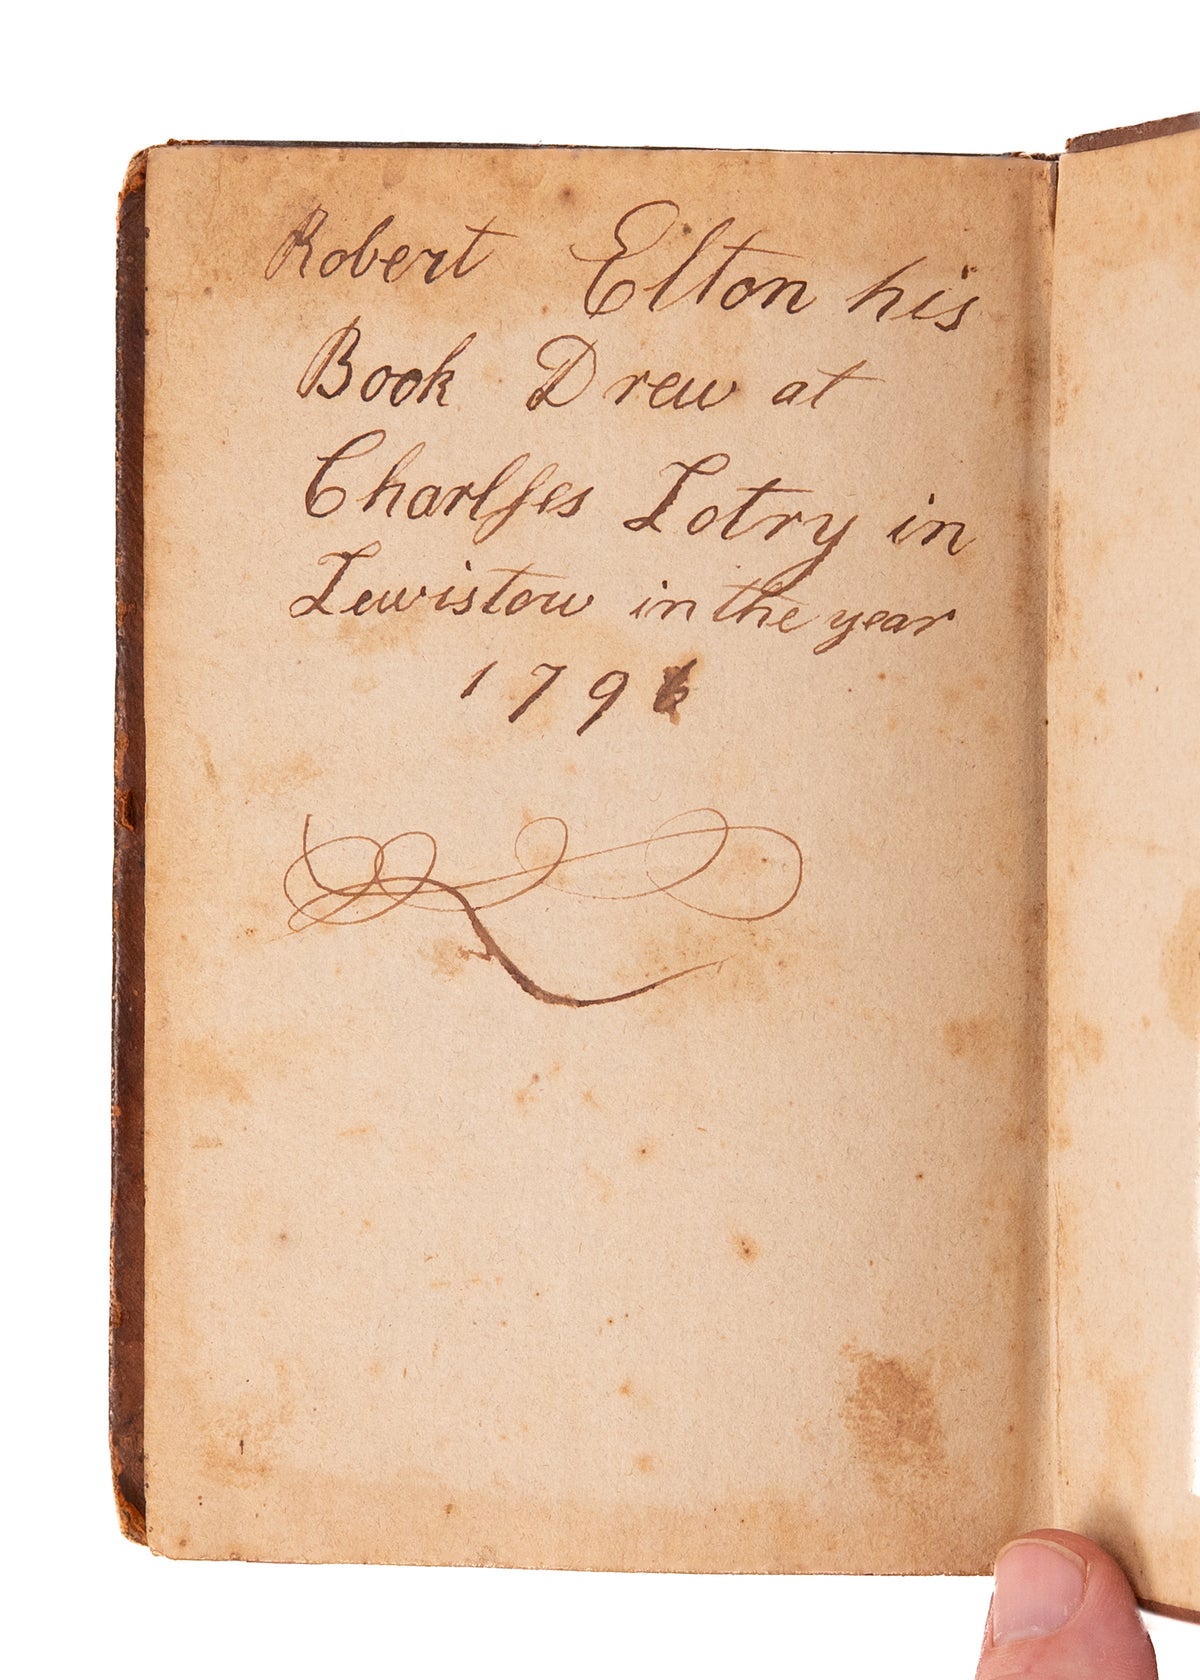 Robert Elton his
Book Drew at
Charlſes Lotry in
Lewistow in the year
1796